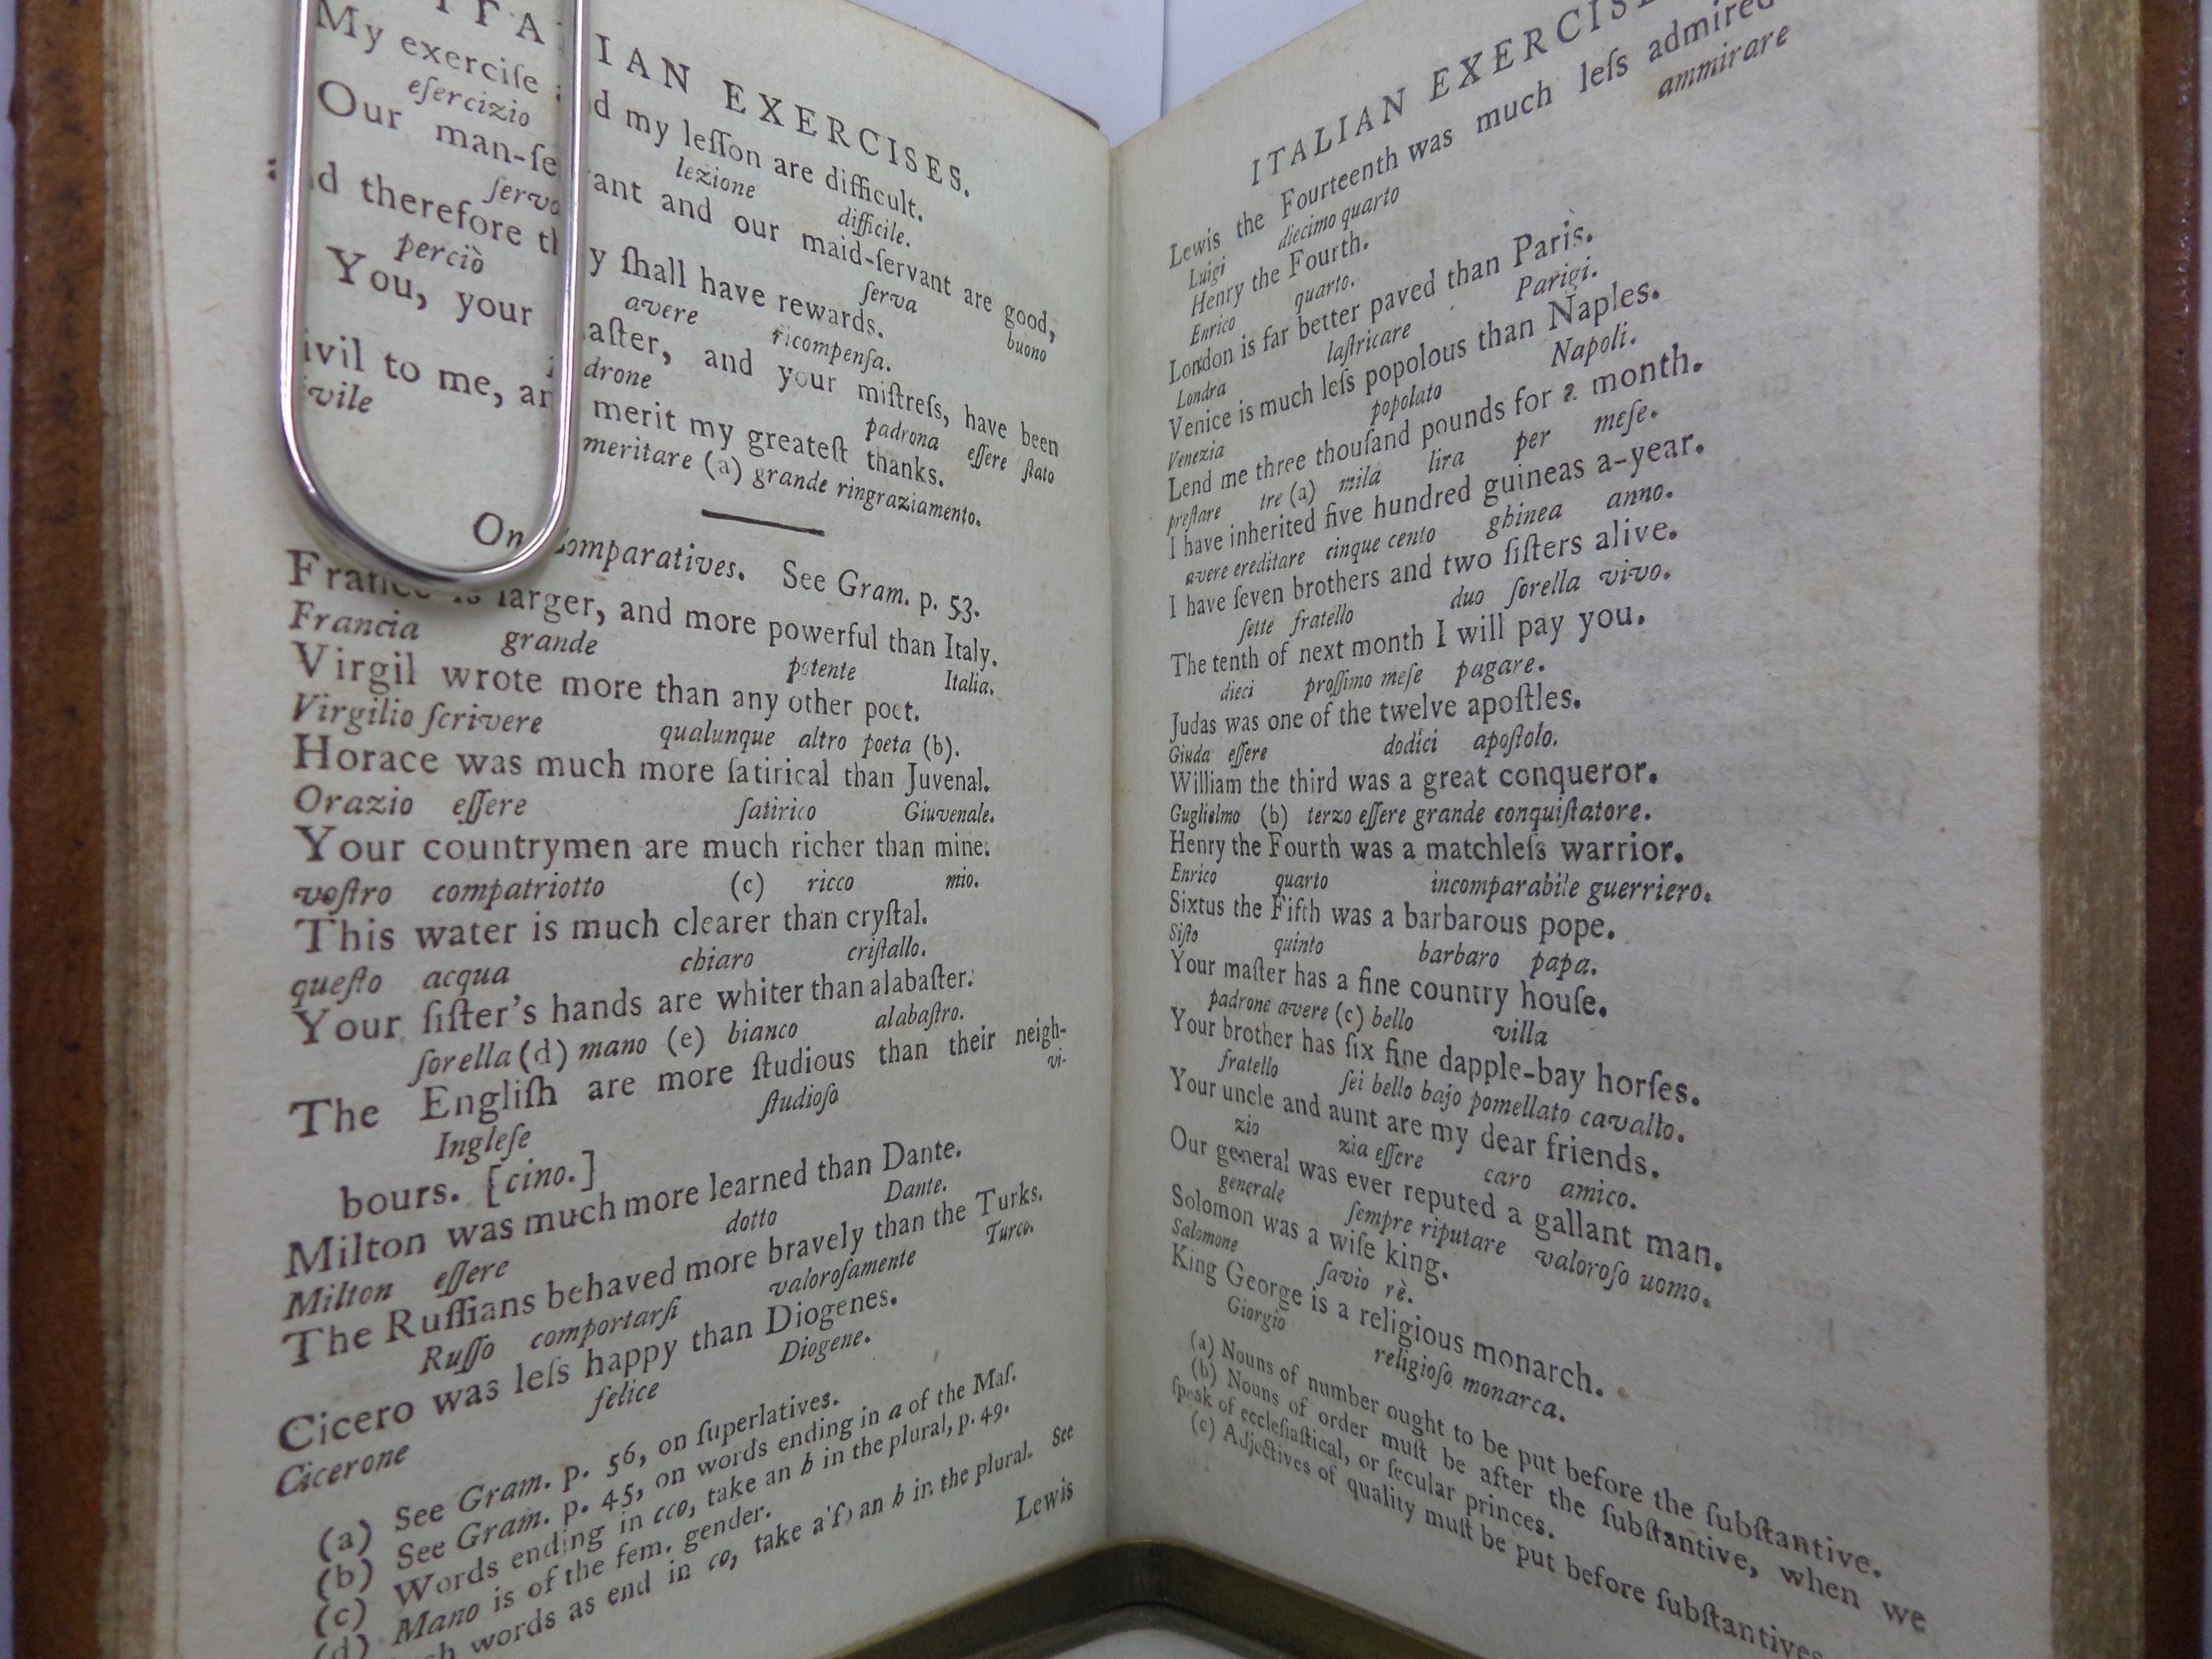 ITALIAN EXERCISES.
My exerciſe and my leſſon are difficult.
eſercizio lezione difficile.
Our man-ſervant and our maid-ſervant are good,
ſervo ſerva buono
and therefore they ſhall have rewards.
perciò avere ricompenſa.
You, your maſter, and your miſtreſs, have been
padrone padrona eſſere ſtato
civil to me, and merit my greateſt thanks.
civile meritare (a) grande ringraziamento.
On Comparatives. See Gram. p. 53.
France is larger, and more powerful than Italy.
Francia grande potente Italia.
Virgil wrote more than any other poet.
Virgilio ſcrivere qualunque altro poeta (b).
Horace was much more ſatirical than Juvenal.
Orazio eſſere ſatirico Giuvenale.
Your countrymen are much richer than mine.
voſtro compatriotto (c) ricco mio.
This water is much clearer than cryſtal.
queſto acqua chiaro criſtallo.
Your ſiſter's hands are whiter than alabaſter.
ſorella (d) mano (e) bianco alabaſtro.
The Engliſh are more ſtudious than their neigh-
Ingleſe ſtudioſo vi-
bours. [cino.]
Milton was much more learned than Dante.
Milton eſſere dotto Dante.
The Ruſſians behaved more bravely than the Turks.
Ruſſo comportarſi valoroſamente Turco.
Cicero was leſs happy than Diogenes.
Cicerone felice Diogene.
(a) See Gram. p. 56, on ſuperlatives.
(b) See Gram. p. 45, on words ending in a of the Maſ.
(c) Words ending in cco, take an h in the plural, p. 49.
(d) Mano is of the fem. gender.
words as end in co, take a'ſo an h in the plural. See
Lewis
ITALIAN EXERCISES
Lewis the Fourteenth was much leſs admired
Luigi diecimo quarto ammirare
Henry the Fourth.
Enrico quarto.
London is far better paved than Paris.
Londra laſtricare Parigi.
Venice is much leſs popolous than Naples.
Venezia popolato Napoli.
Lend me three thouſand pounds for a month.
preſtare tre (a) mila lira per meſe.
I have inherited five hundred guineas a-year.
avere ereditare cinque cento ghinea anno.
I have ſeven brothers and two ſiſters alive.
ſette fratello duo ſorella vivo.
The tenth of next month I will pay you.
dieci proſſimo meſe pagare.
Judas was one of the twelve apoſtles.
Giuda eſſere dodici apoſtolo.
William the third was a great conqueror.
Guglielmo (b) terzo eſſere grande conquiſtatore.
Henry the Fourth was a matchleſs warrior.
Enrico quarto incomparabile guerriero.
Sixtus the Fifth was a barbarous pope.
Siſto quinto barbaro papa.
Your maſter has a fine country houſe.
padrone avere (c) bello villa
Your brother has ſix fine dapple-bay horſes.
fratello ſei bello bajo pomellato cavallo.
Your uncle and aunt are my dear friends.
zio zia eſſere caro amico.
Our general was ever reputed a gallant man.
generale ſempre riputare valoroſo uomo.
Solomon was a wiſe king.
Salomone ſavio rè.
King George is a religious monarch.
Giorgio religioſo monarca.
(a) Nouns of number ought to be put before the ſubſtantive.
(b) Nouns of order muſt be after the ſubſtantive, when we
ſpeak of eccleſiaſtical, or ſecular princes.
(c) Adjectives of quality muſt be put before ſubſtantives